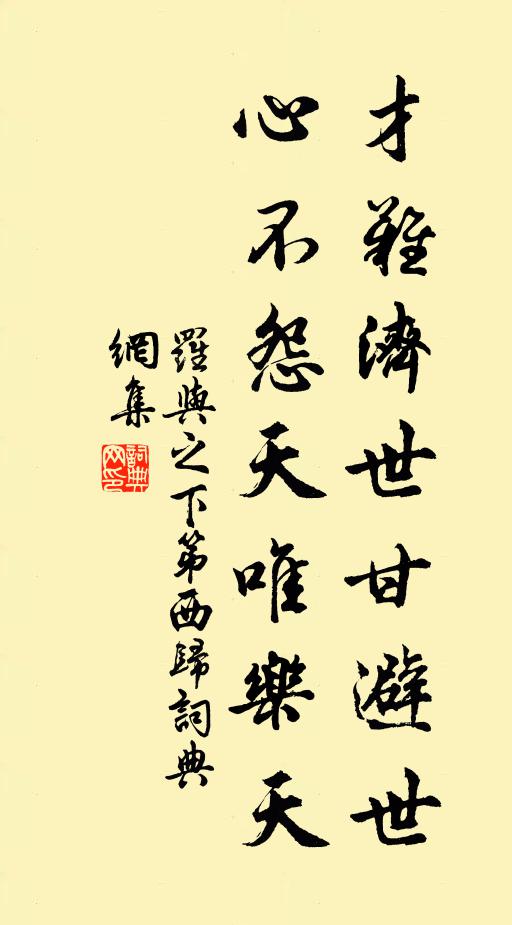 才難濟世甘避世
心不怨天唯樂天
羅與之下第西歸詞典
網集
詞典
网印